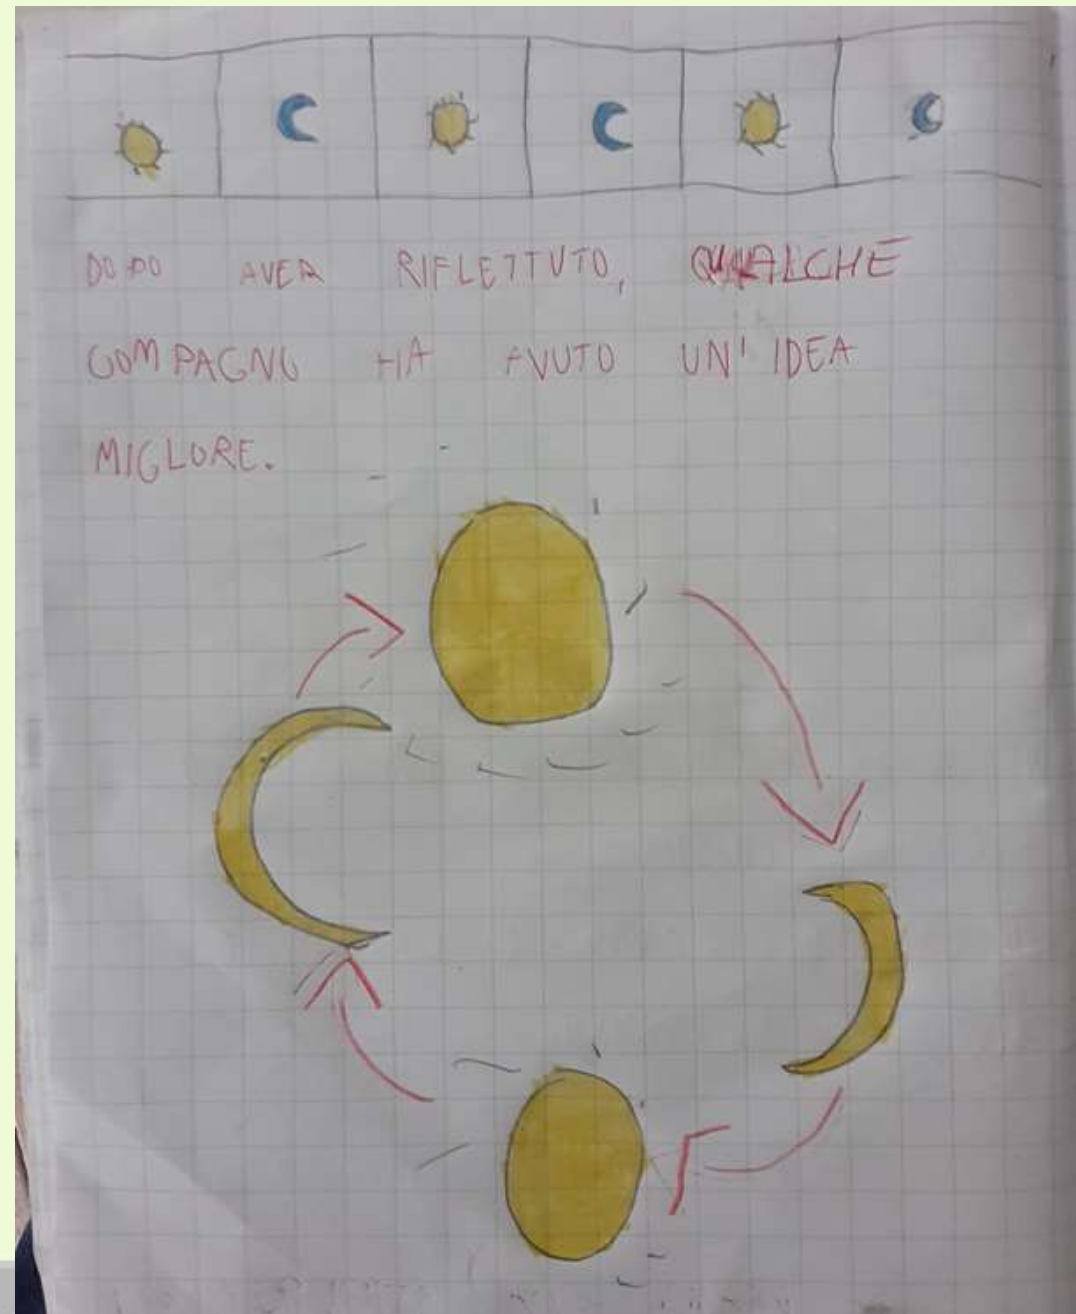 DOPO AVER RIFLETTUTO, QUALCHE
COMPAGNO HA AVUTO UN' IDEA
MIGLORE.